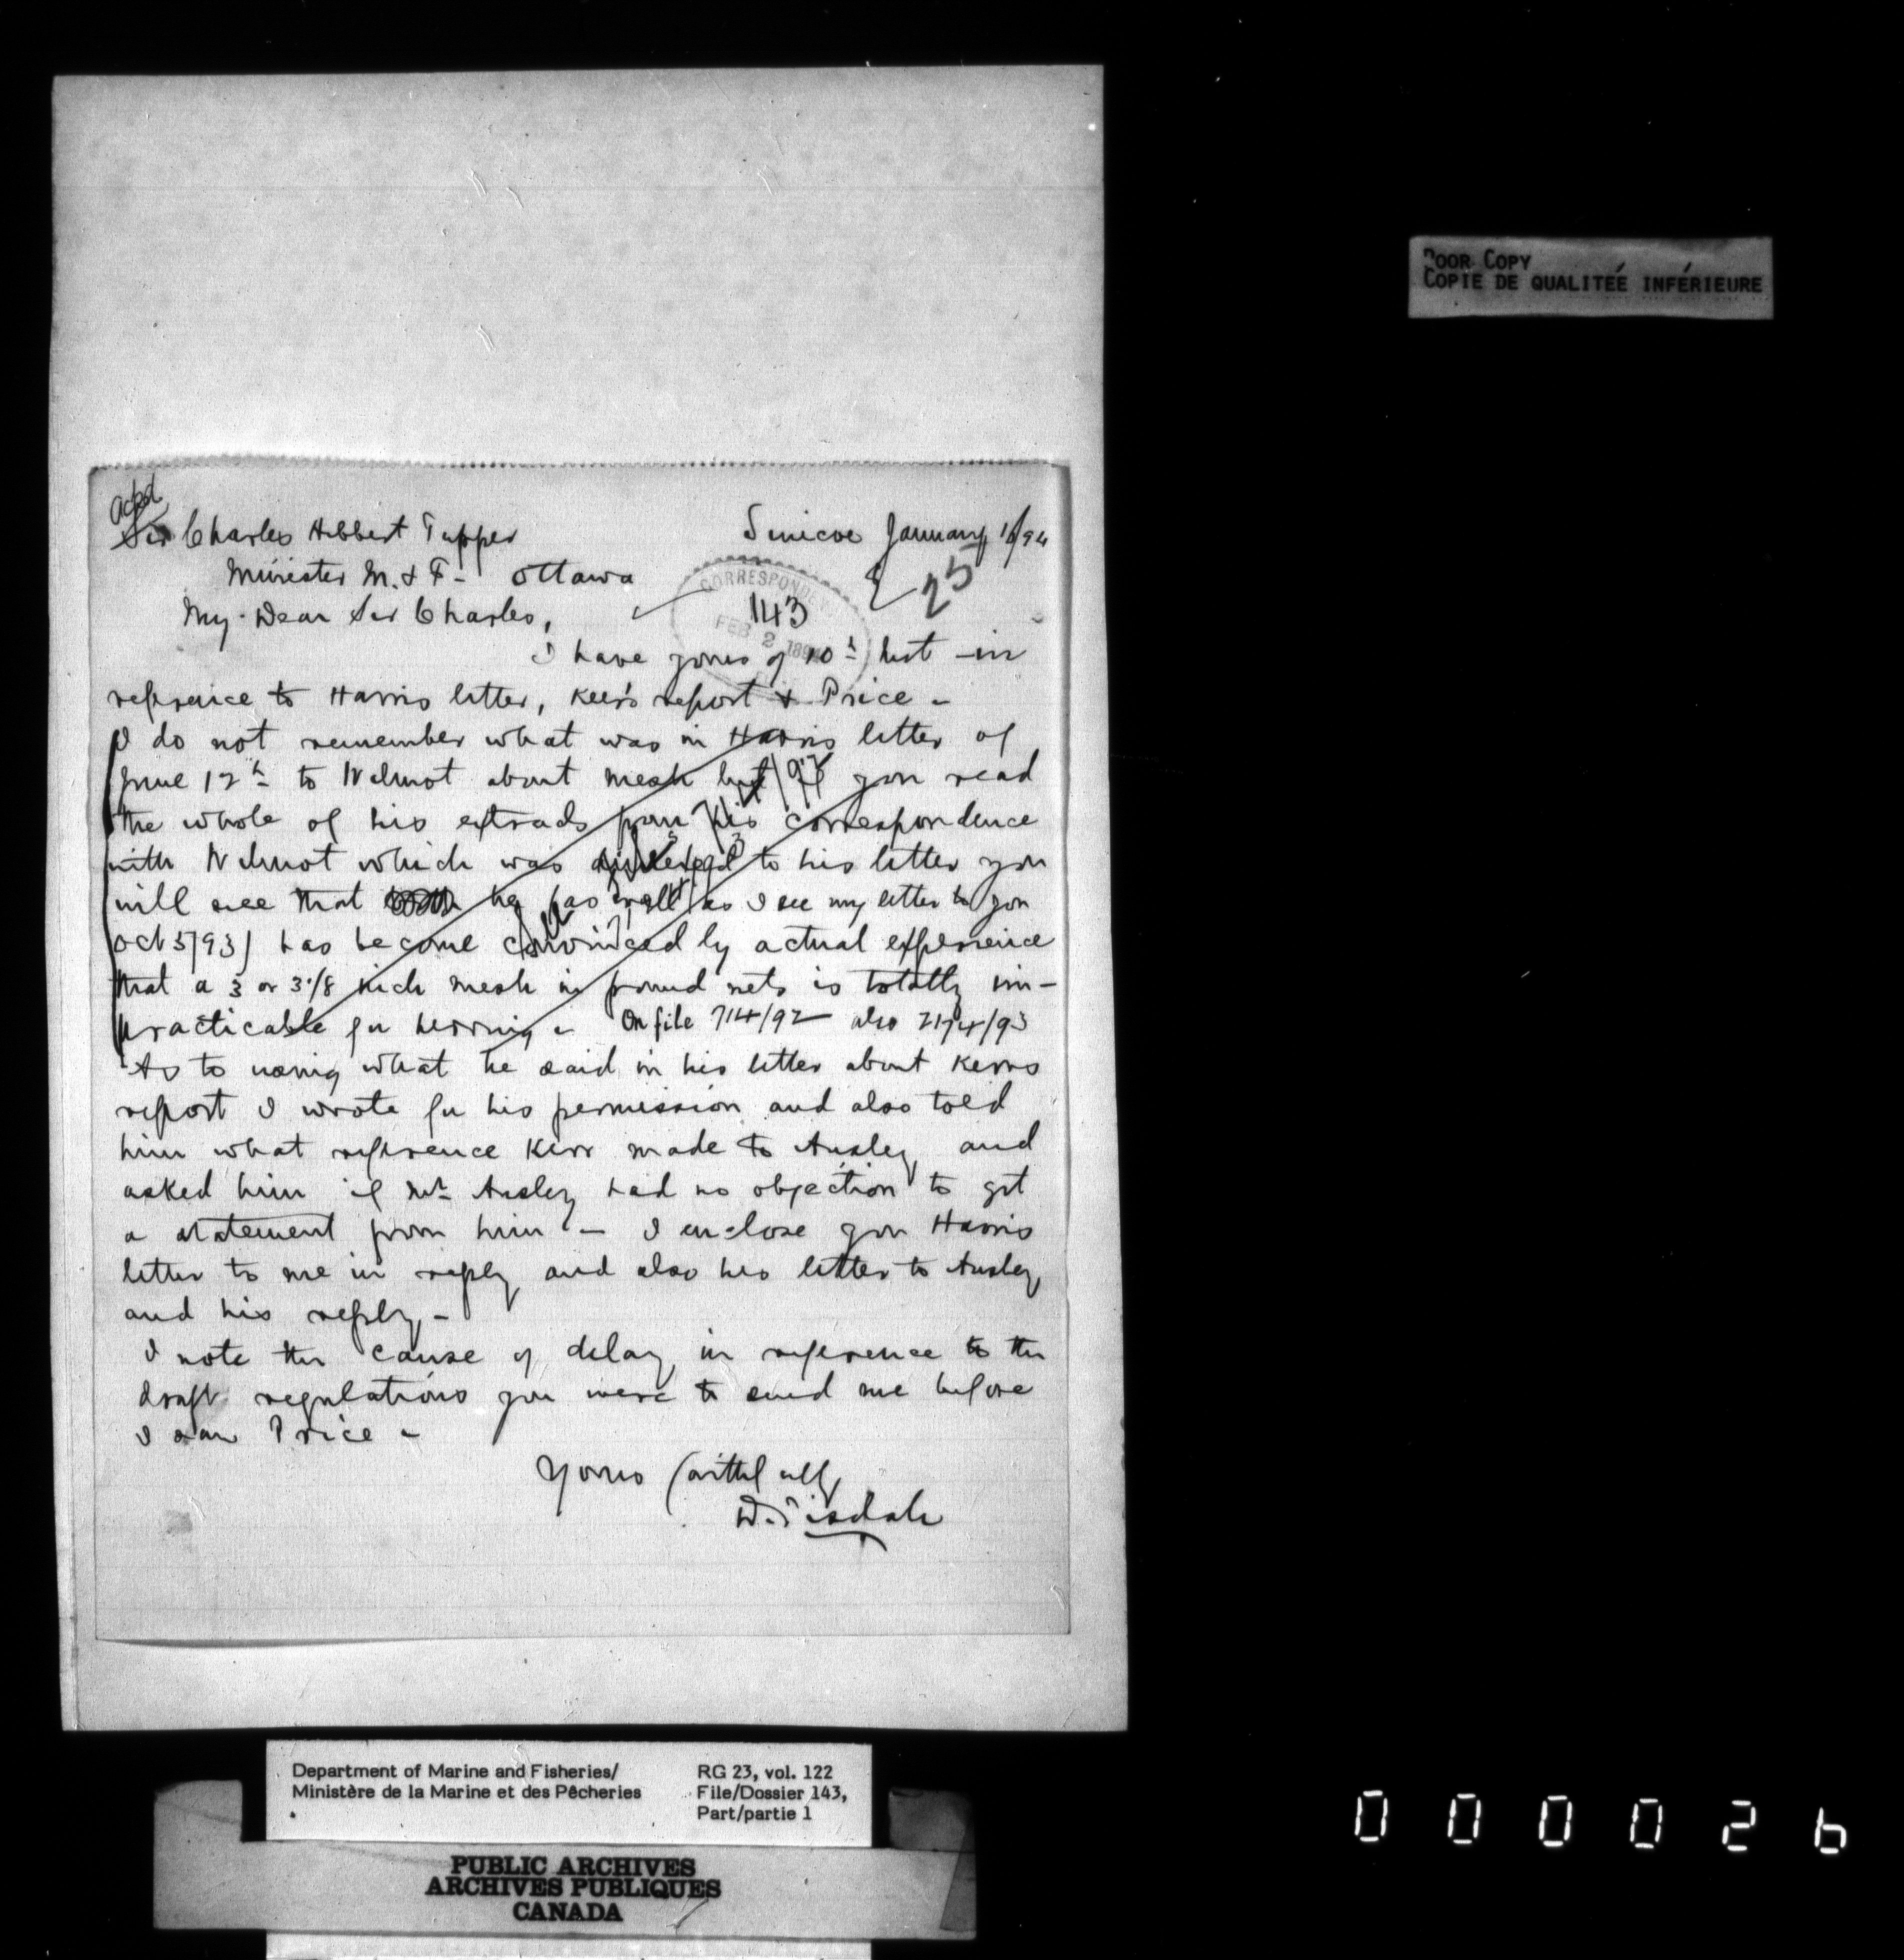 POOR COPY
COPIE DE QUALITEÉ INFÉRIEURE
ackd
Sir Charles Hibbert Tupper
Simcoe January 16/94
Minister M. & F - Ottawa
25
My Dear Sir Charles,
CORRESPONDENCE
143
FEB 2 1894
I have yours of 10th inst - in
reference to Harris letter, Kerr's report & Price -
I do not remember what was in Harris letter of
June 12th to Wilmot about mesh but if you read
the whole of his extracts from his correspondence
with Wilmot which was to his letter you
will see that he has well as I see my letter to you
Oct 5/93) has become convinced by actual experience
that a 3 or 3 1/8 inch mesh in pound nets is totally im-
practicable for herring - On file 714/92 also 2174/93
As to using what he said in his letter about Kerrs
report I wrote for his permission and also told
him what reference Kerr made to Ansley and
asked him if Mr Ansley had no objection to get
a statement from him - I enclose you Harris
letter to me in reply and also his letter to Ansley
and his reply -
I note the cause of delay in reference to the
draft regulations you were to send me before
I saw Price -
Yours faithfully
D. Tisdale
Department of Marine and Fisheries/
Ministère de la Marine et des Pêcheries
RG 23, vol. 122
File/Dossier 143,
Part/partie 1
PUBLIC ARCHIVES
ARCHIVES PUBLIQUES
CANADA
000026